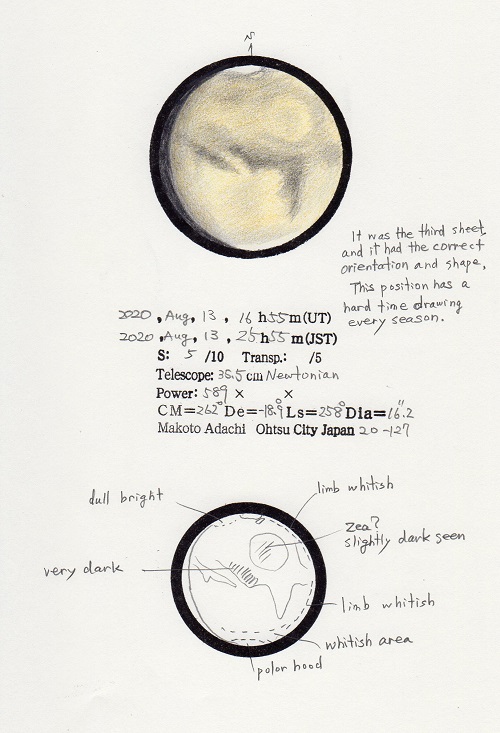 N
It was the third sheet,
and it had the correct
orientation and shape,
This position has a
hard time drawing
every season.
2020, Aug, 13, 16 h55m(UT)
2020, Aug, 13, 25h55m(JST)
S: 5 /10 Transp.: /5
Telescope: 35.5cm Newtonian
Power: 589 × ×
CM=262° De=-18.9° Ls=258° Dia=16".2
Makoto Adachi Ohtsu City Japan 20-127
dull bright
limb whitish
Zea?
slightly dark seen
very dark
limb whitish
whitish area
polor hood